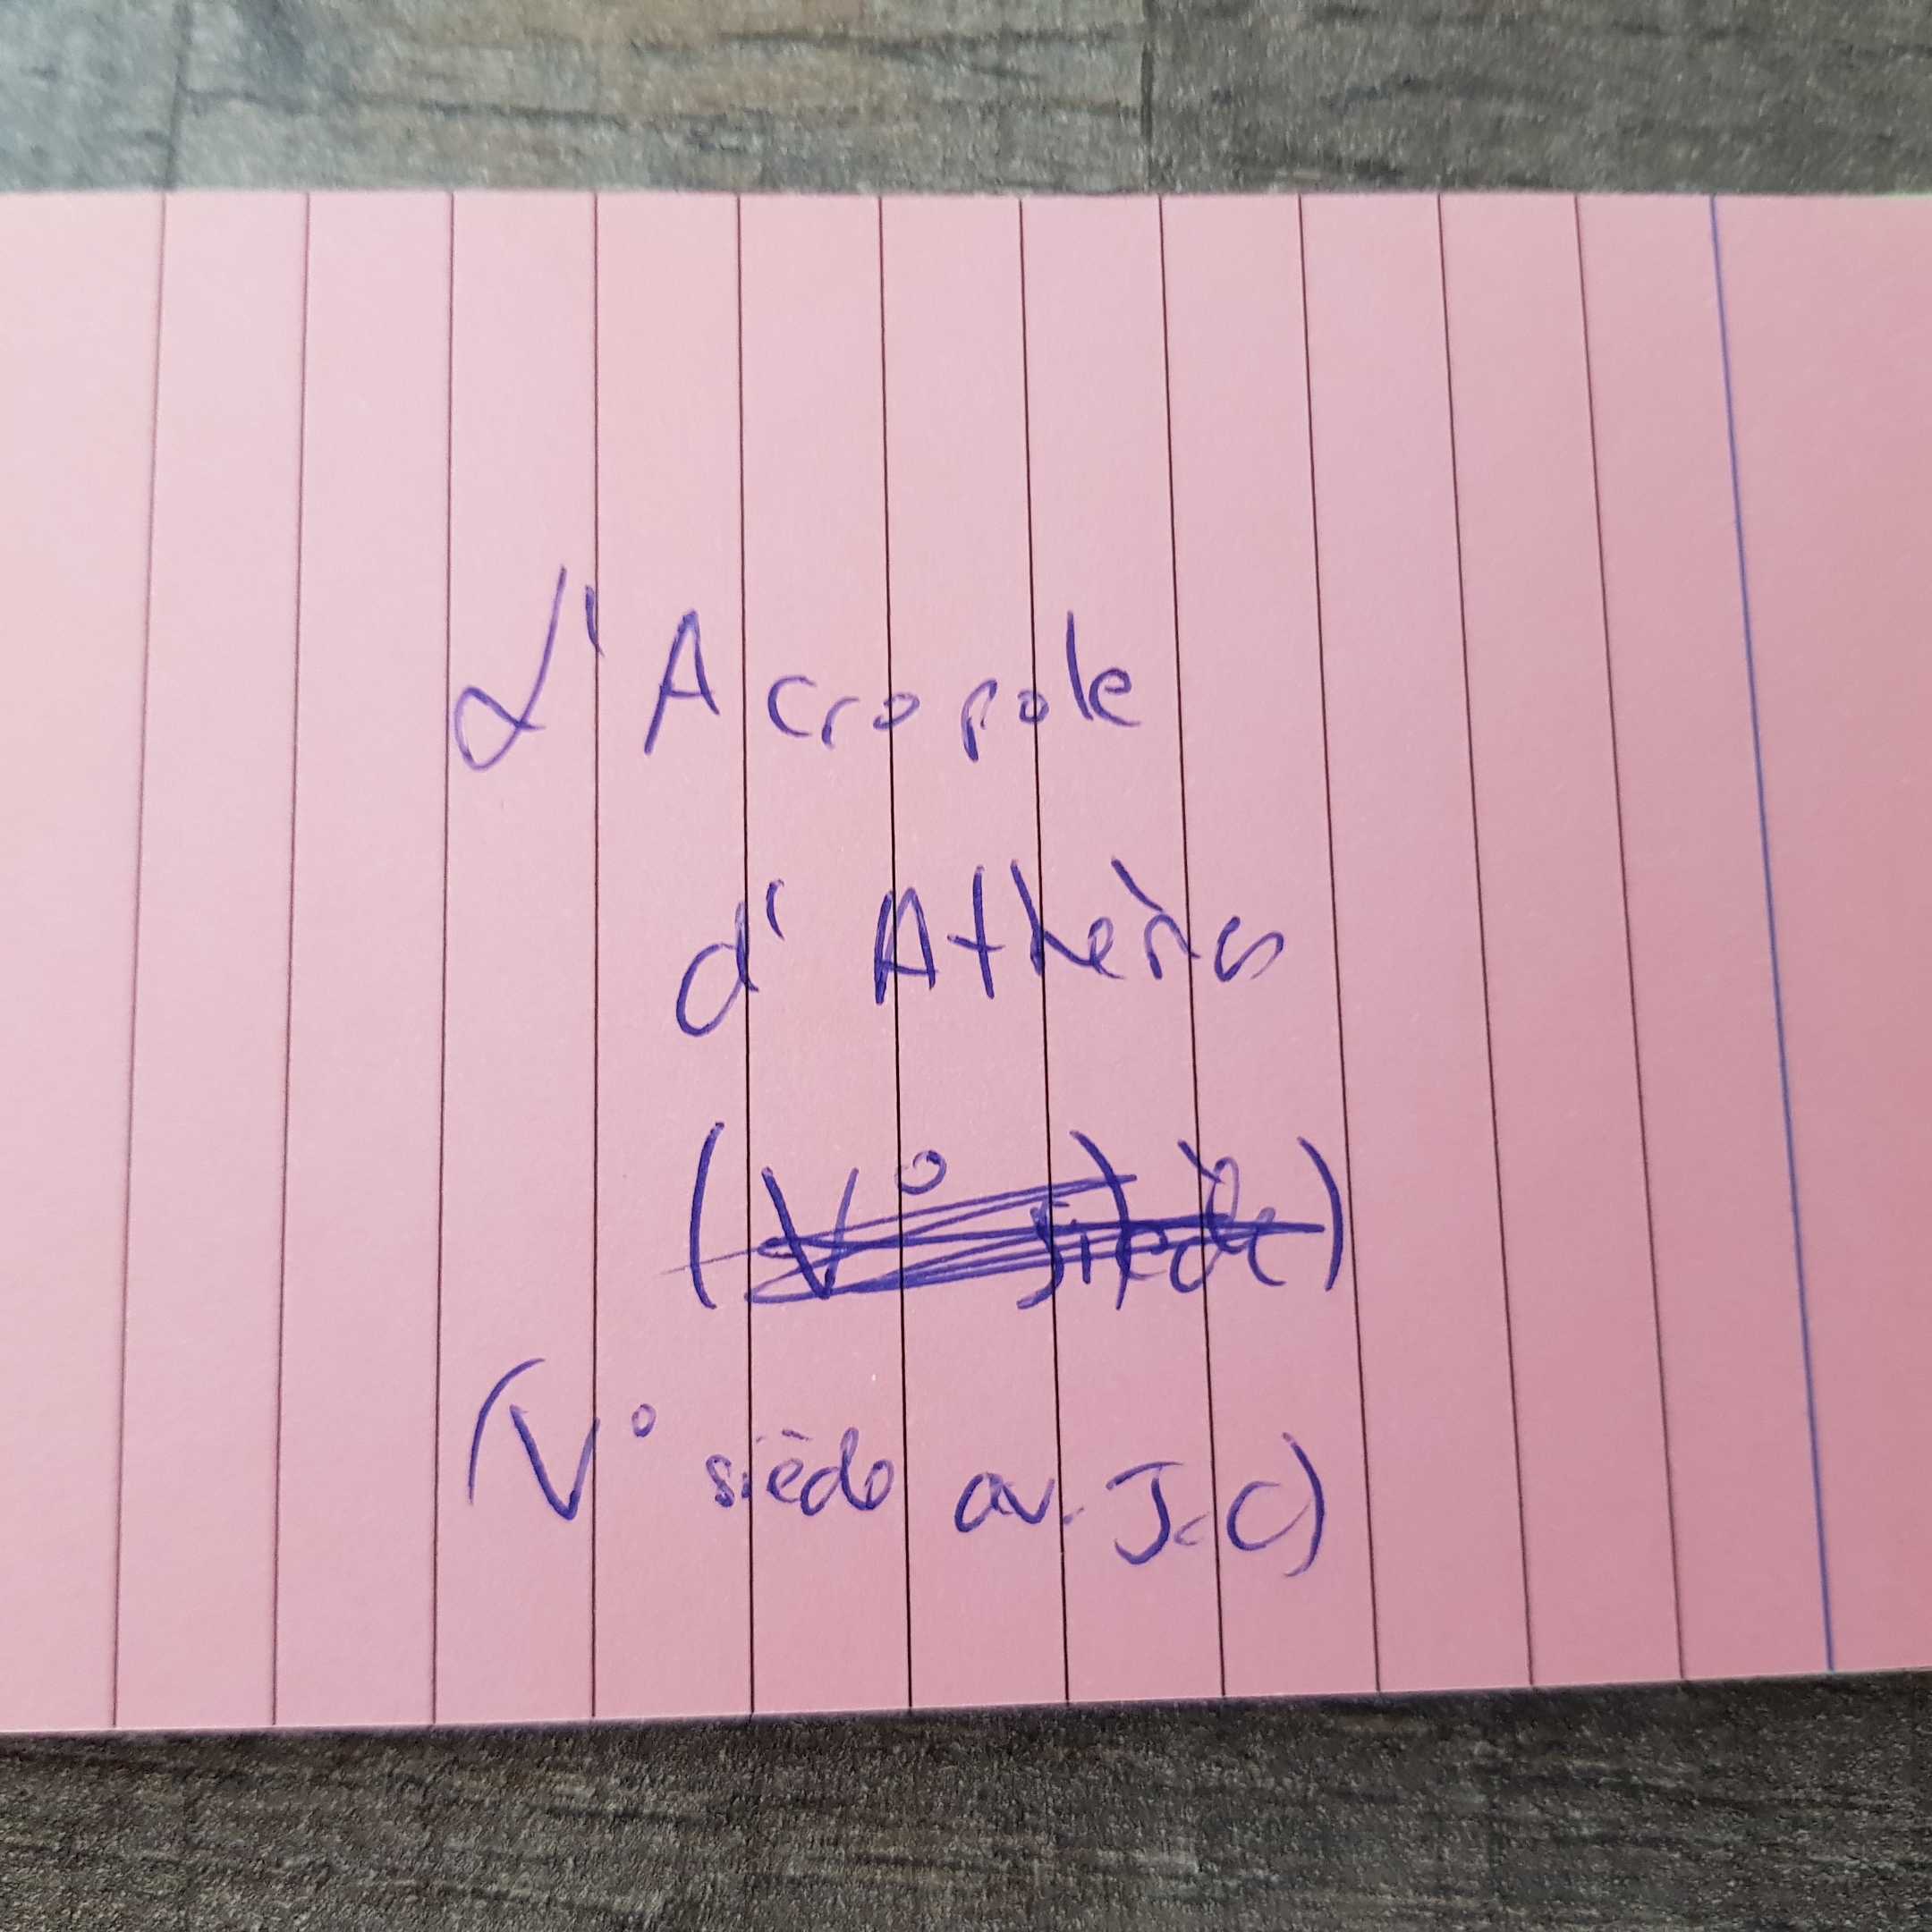 L'Acropole
d'Athènes
(V° siècle)
(V° siècle av. J.C)